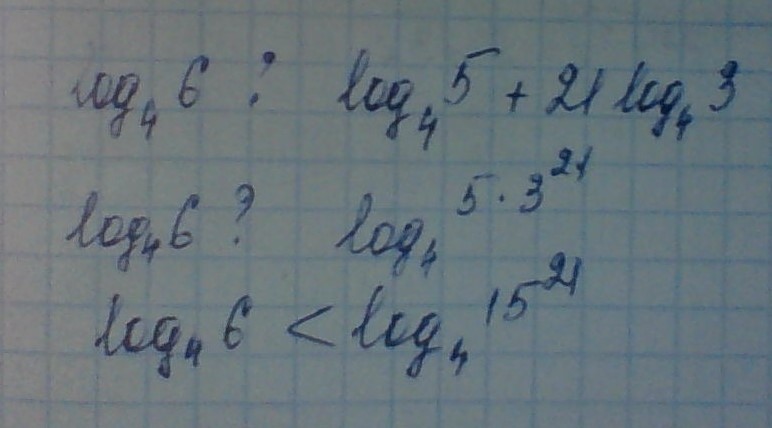 log₄6 ? log₄5 + 21 log₄3
log₄6 ? log₄5·3²¹
log₄6 < log₄15²¹